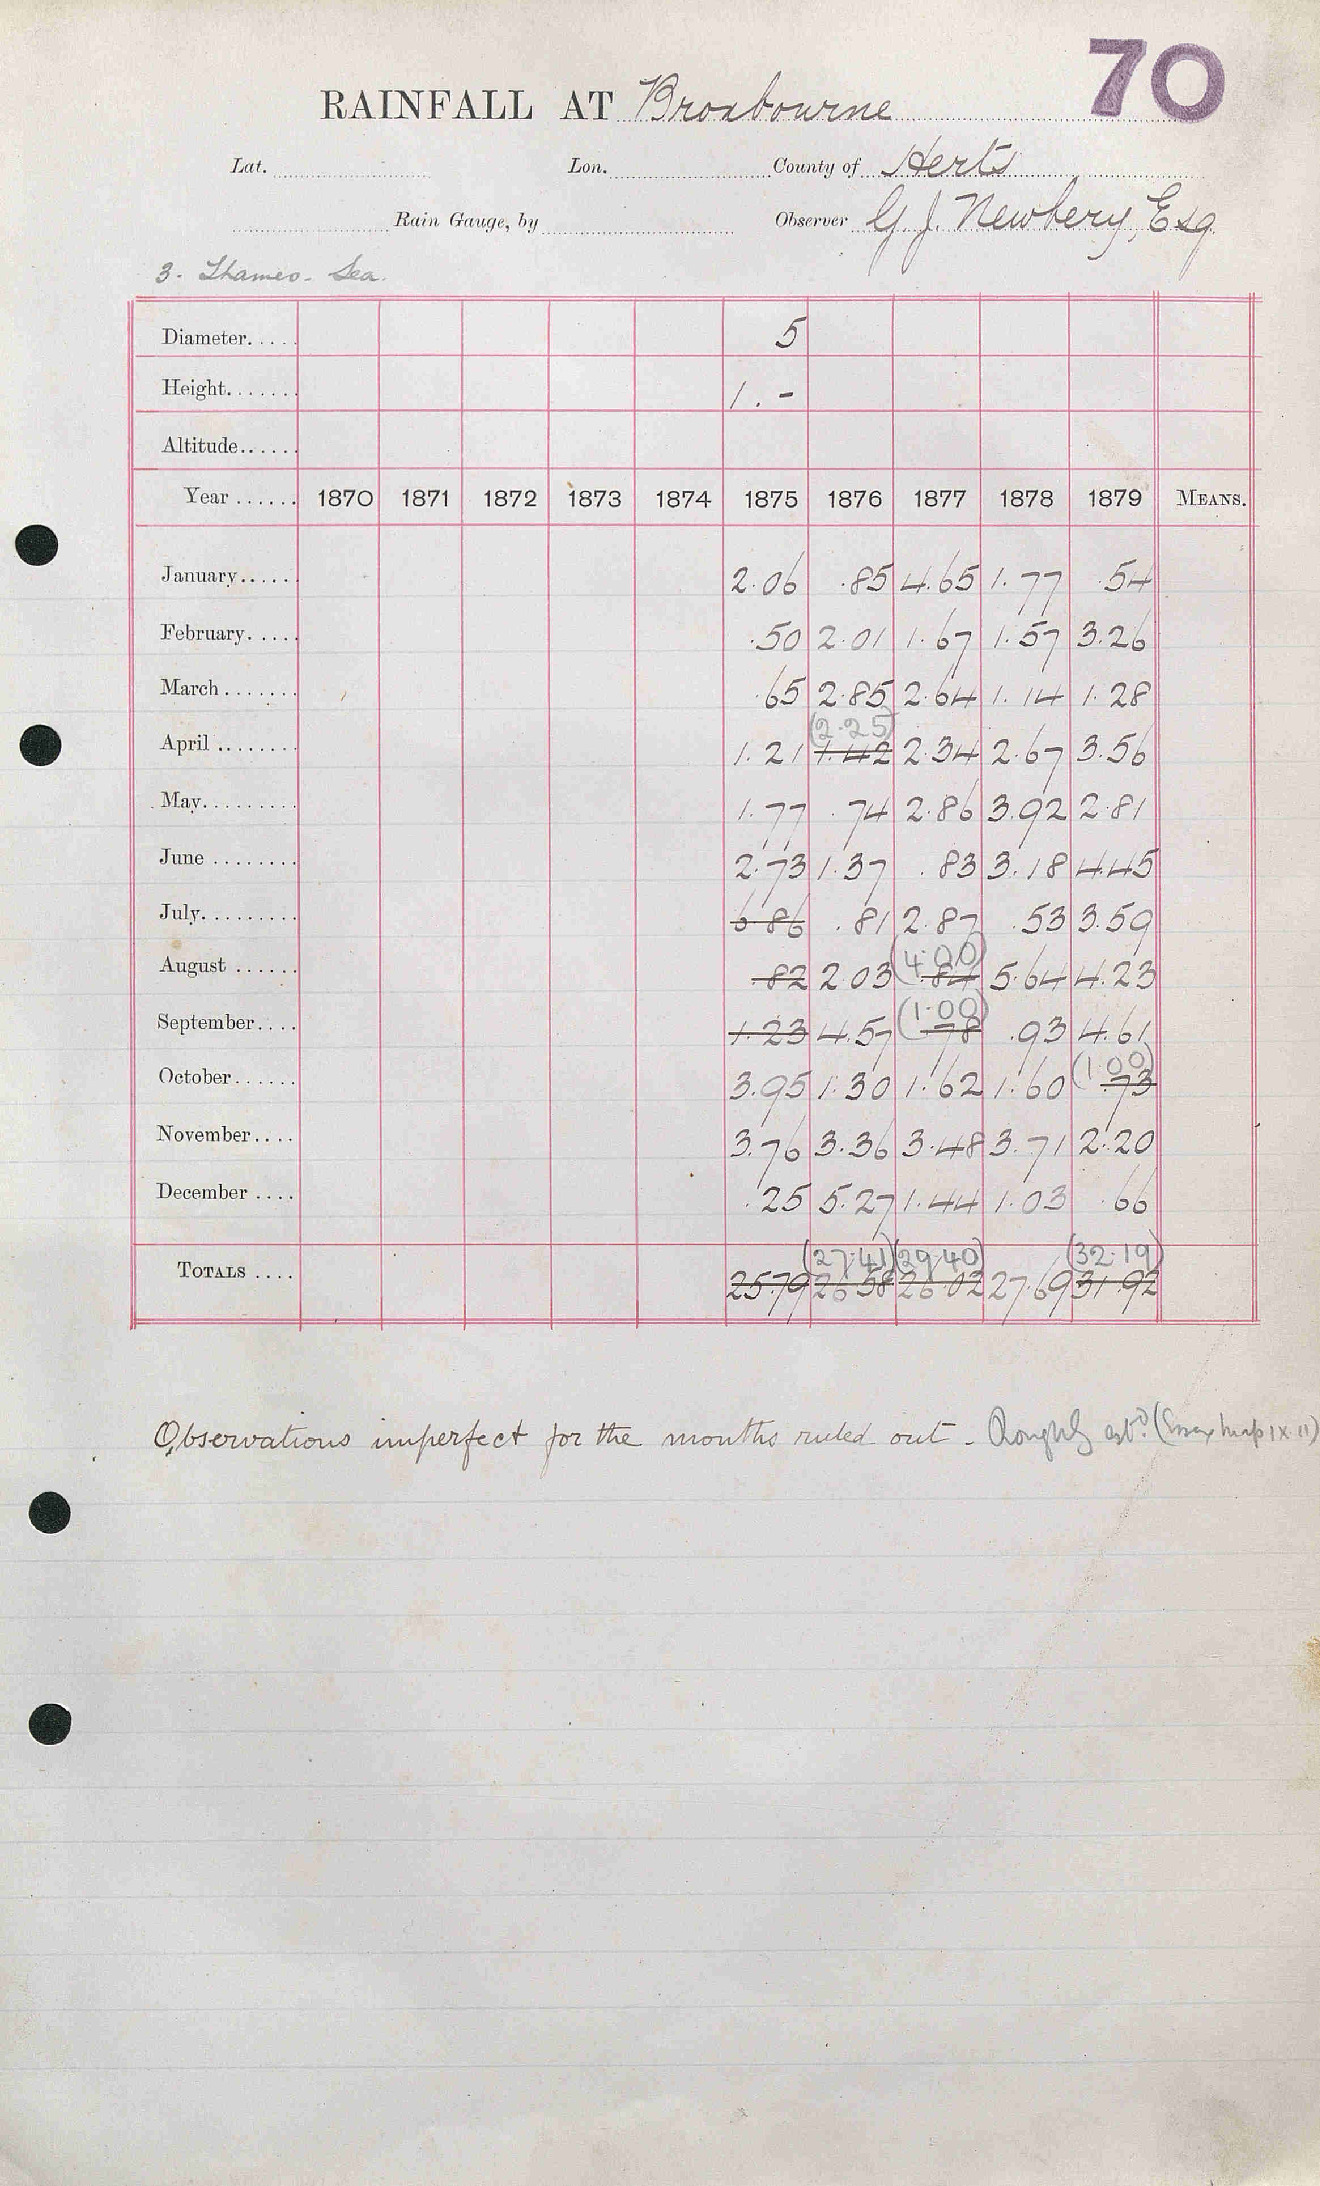 70
RAINFALL AT Broxbourne
Lat. Lon. County of Herts
Rain Gauge, by Observer G. J. Newbery, Esq
3. Thames - Lea.
Diameter..... 5
Height....... 1. -
Altitude......
Year ...... 1870 1871 1872 1873 1874 1875 1876 1877 1878 1879 MEANS.
January...... 2.06 .85 4.65 1.77 .54
February..... .50 2.01 1.67 1.57 3.26
March ....... .65 2.85 2.64 1.14 1.28
(2.25)
April ........ 1.21 1.42 2.34 2.67 3.56
May......... 1.77 .74 2.86 3.92 2.81
June ........ 2.73 1.37 .83 3.18 4.45
July......... 6.86 .81 2.87 .53 3.59
(4.00)
August ...... .82 2.03 .84 5.64 4.23
(1.00)
September.... 1.23 4.57 .78 .93 4.61
(1.00)
October...... 3.95 1.30 1.62 1.60 .73
November.... 3.76 3.36 3.48 3.71 2.20
December .... .25 5.27 1.44 1.03 .66
(27.41) (29.40) (32.19)
TOTALS .... 25.79 26.58 26.02 27.69 31.92
Observations imperfect for the months ruled out - Roughly estd. (Essex map IX.11)